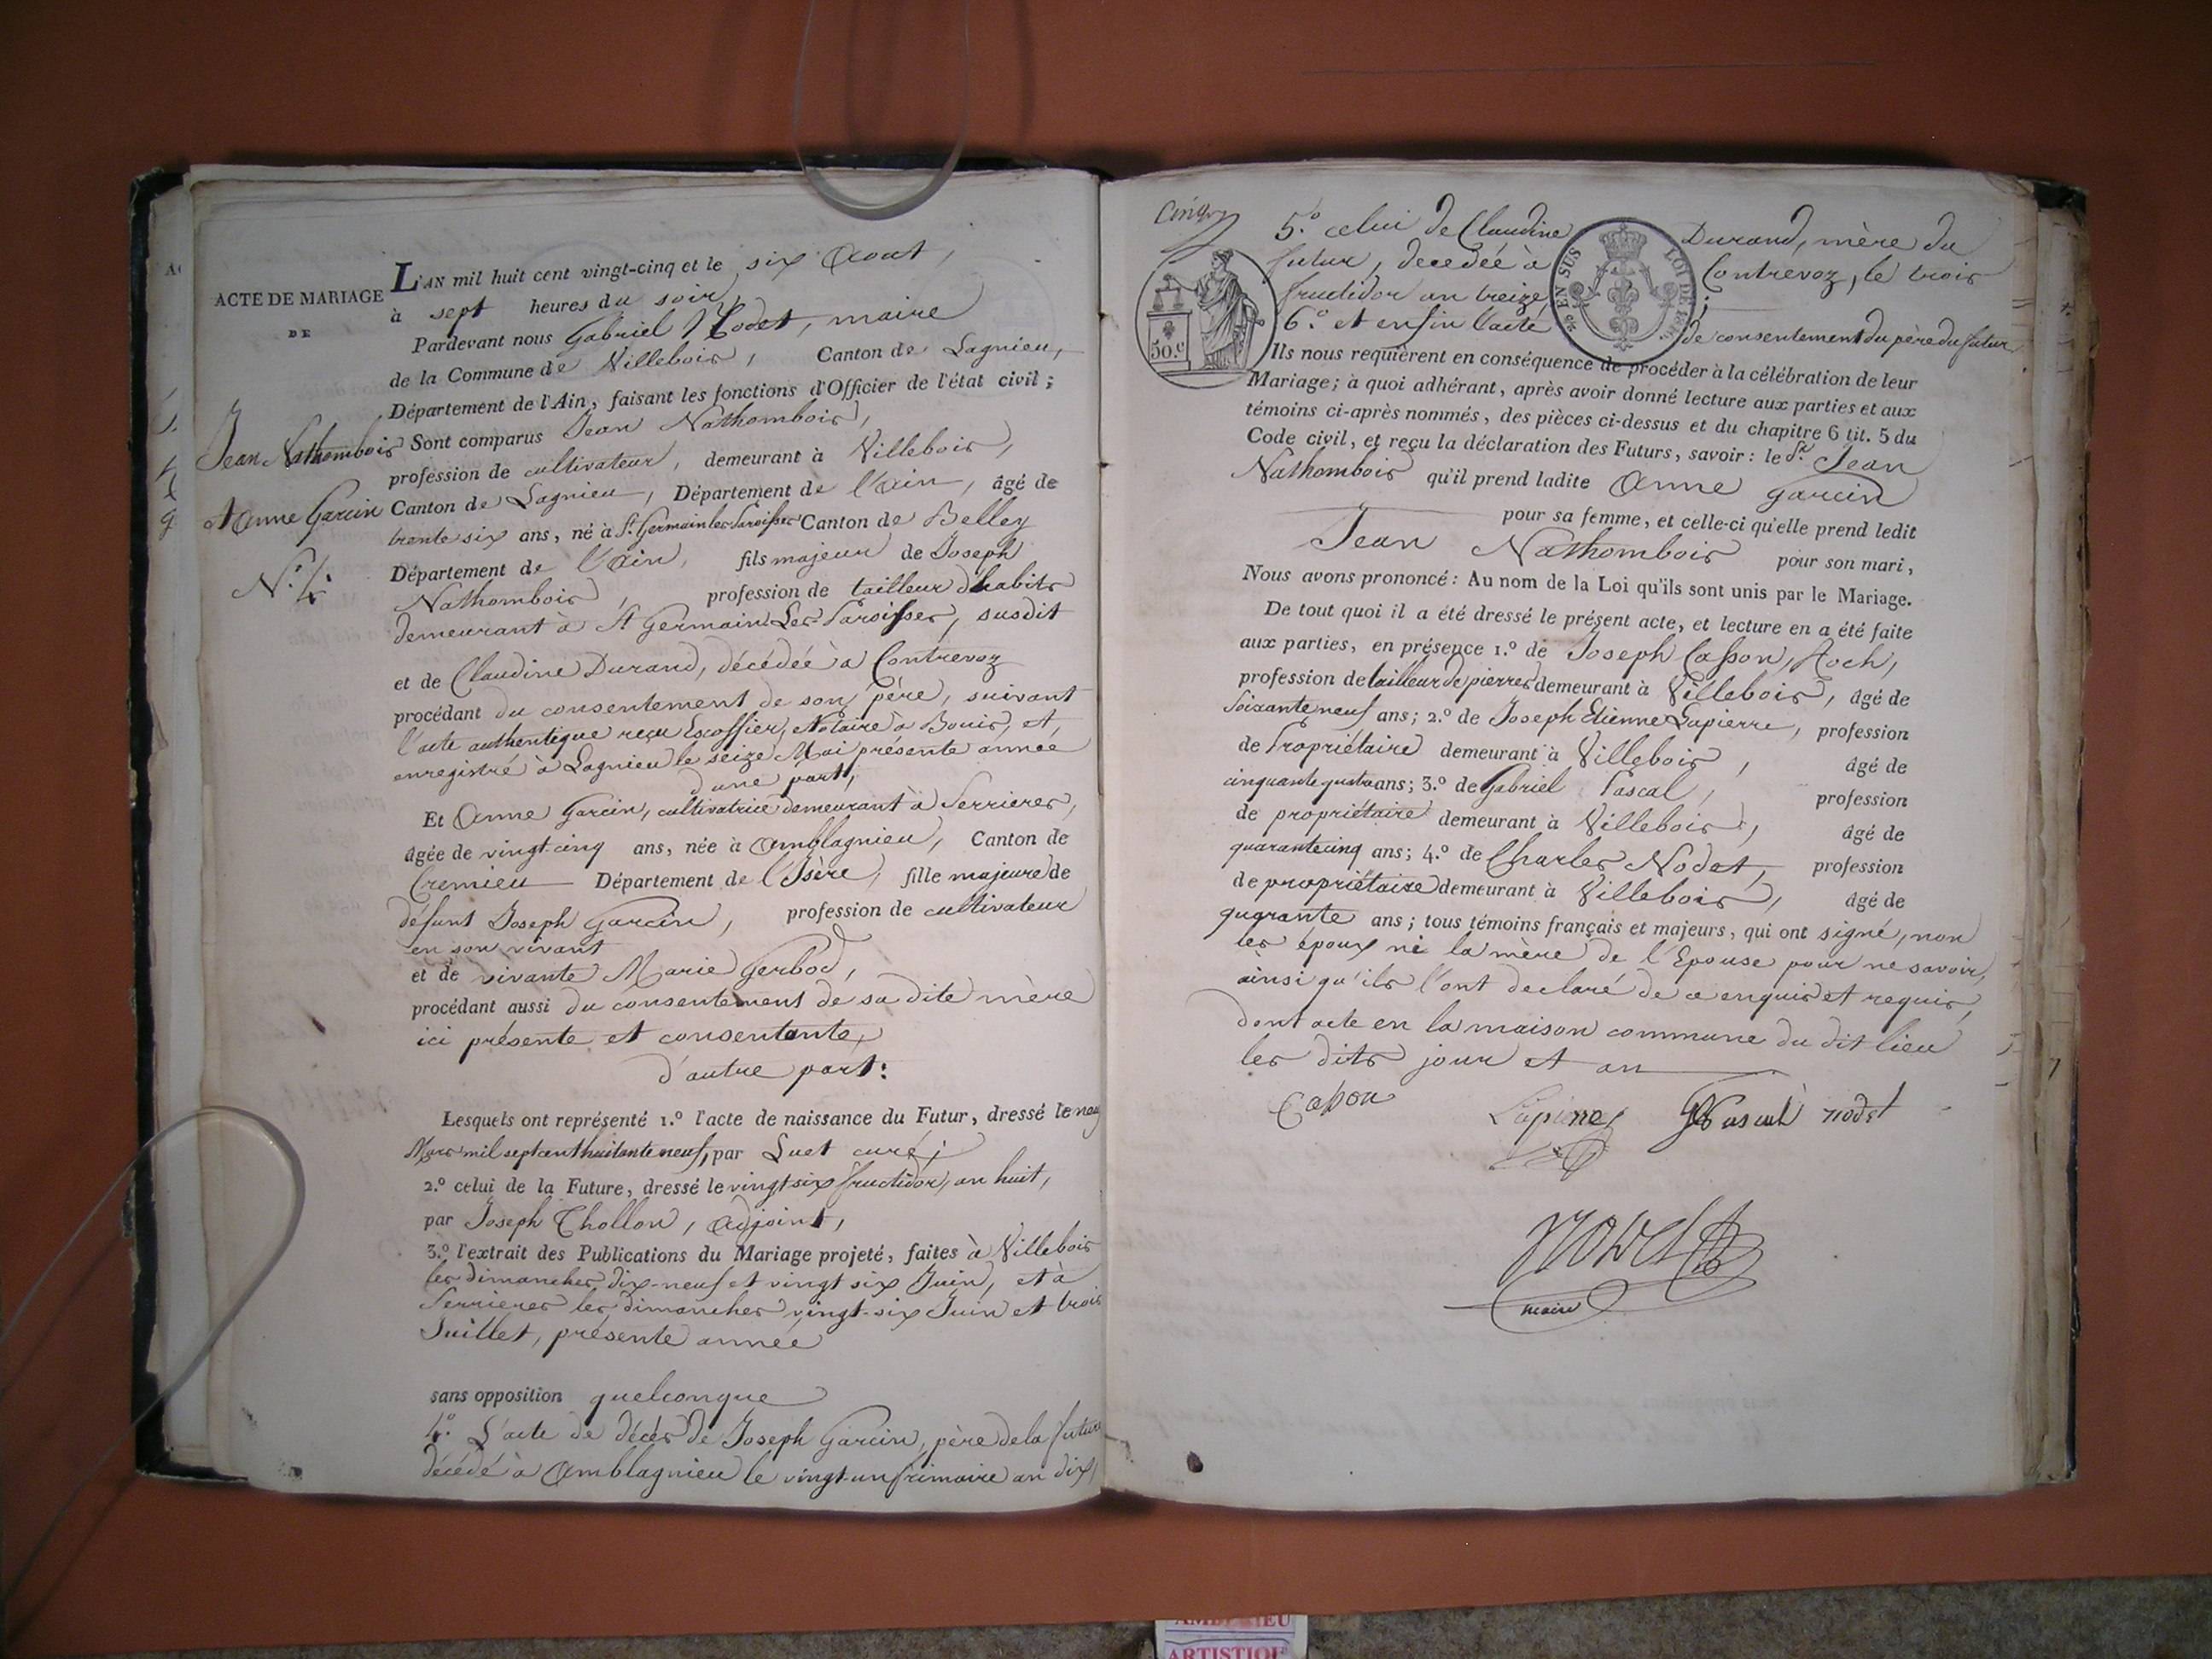 ACTE DE MARIAGE
DE
Jean Nathombois
et Anne Garcin
N.º 4.
L'AN mil huit cent vingt-cinq et le six Aout,
à sept heures du soir,
Pardevant nous Gabriel Nodet, maire
de la Commune de Villebois, Canton de Lagnieu,
Département de l'Ain, faisant les fonctions d'Officier de l'état civil;
Sont comparus Jean Nathombois,
profession de cultivateur, demeurant à Villebois,
Canton de Lagnieu, Département de l'Ain, âgé de
trente six ans, né à St. Germain les Paroisses Canton de Belley
Département de l'Ain, fils majeur de Joseph
Nathombois, profession de tailleur d'habits
demeurant à St Germain Les Paroisses, susdit
et de Claudine Durand, décédée à Contrevoz
procédant du consentement de son père, suivant
l'acte authentique reçu Escoffier, Notaire à Bouis, et,
enregistré à Lagnieu le seize Mai présente année
d'une part,
Et Anne Garcin, cultivatrice demeurant à Serrieres,
âgée de vingt-cinq ans, née à Amblagnieu, Canton de
Cremieu Département de l'Isère, fille majeure de
défunt Joseph Garcin, profession de cultivateur
en son vivant
et de vivante Marie Gerbod,
procédant aussi du consentement de sa dite mère
ici présente et consentante,
d'autre part:
Lesquels ont représenté 1.º l'acte de naissance du Futur, dressé le neuf
Mars mil sept cent huitante neuf, par Luet curé;
2.º celui de la Future, dressé le vingt six fructidor, an huit,
par Joseph Chollon, Adjoint,
3.º l'extrait des Publications du Mariage projeté, faites à Villebois
les dimanches dix-neuf et vingt six Juin, et à
Serrieres les dimanches vingt-six Juin et trois
Juillet, présente année
sans opposition quelconque
4.º L'acte de décès de Joseph Garcin, père de la future
décédé à Amblagnieu le vingt-un frimaire an dix,
50.c
EN SUS
LOI DE 1816
5.º celui de Claudine Durand, mère du
futur, decedée à Contrévoz, le trois
fructidor an treize;
6.º et enfin l'acte de consentement du père du futur
Ils nous requièrent en conséquence de procéder à la célébration de leur
Mariage; à quoi adhérant, après avoir donné lecture aux parties et aux
témoins ci-après nommés, des pièces ci-dessus et du chapitre 6 tit. 5 du
Code civil, et reçu la déclaration des Futurs, savoir: le Sr. Jean
Nathombois qu'il prend ladite Anne Garcin
pour sa femme, et celle-ci qu'elle prend ledit
Jean Nathombois pour son mari,
Nous avons prononcé: Au nom de la Loi qu'ils sont unis par le Mariage.
De tout quoi il a été dressé le présent acte, et lecture en a été faite
aux parties, en présence 1.º de Joseph Casson, Roch,
profession de tailleur de pierres demeurant à Villebois, âgé de
soixante neuf ans; 2.º de Joseph Etienne Lapierre, profession
de Propriétaire demeurant à Villebois, âgé de
cinquante quatre ans; 3.º de Gabriel Pascal, profession
de propriétaire demeurant à Villebois, âgé de
quarante cinq ans; 4.º de Charles Nodet, profession
de propriétaire demeurant à Villebois, âgé de
quarante ans; tous témoins français et majeurs, qui ont signé, non
les époux ni la mère de l'Epouse pour ne savoir,
ainsi qu'ils l'ont declaré de ce enquis et requis,
dont acte en la maison commune du dit lieu
les dits jour et an
Casson Lapierre G Pascal nodet
Nodet
maire